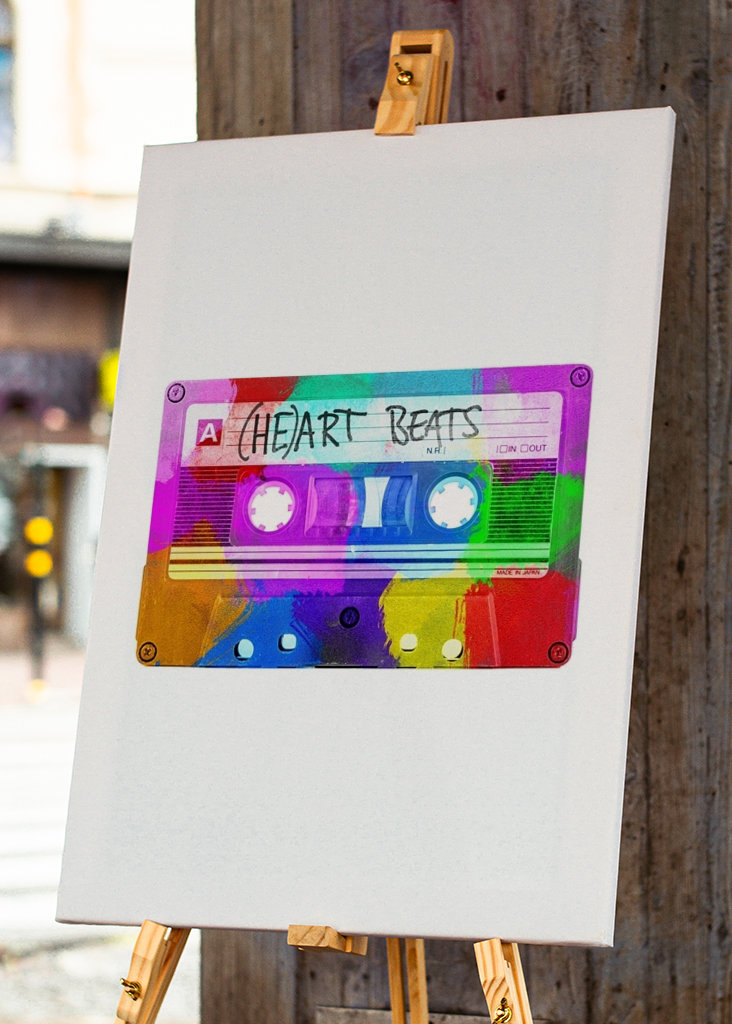 A (HE)ART BEATS
N.R. | IN OUT
MADE IN JAPAN